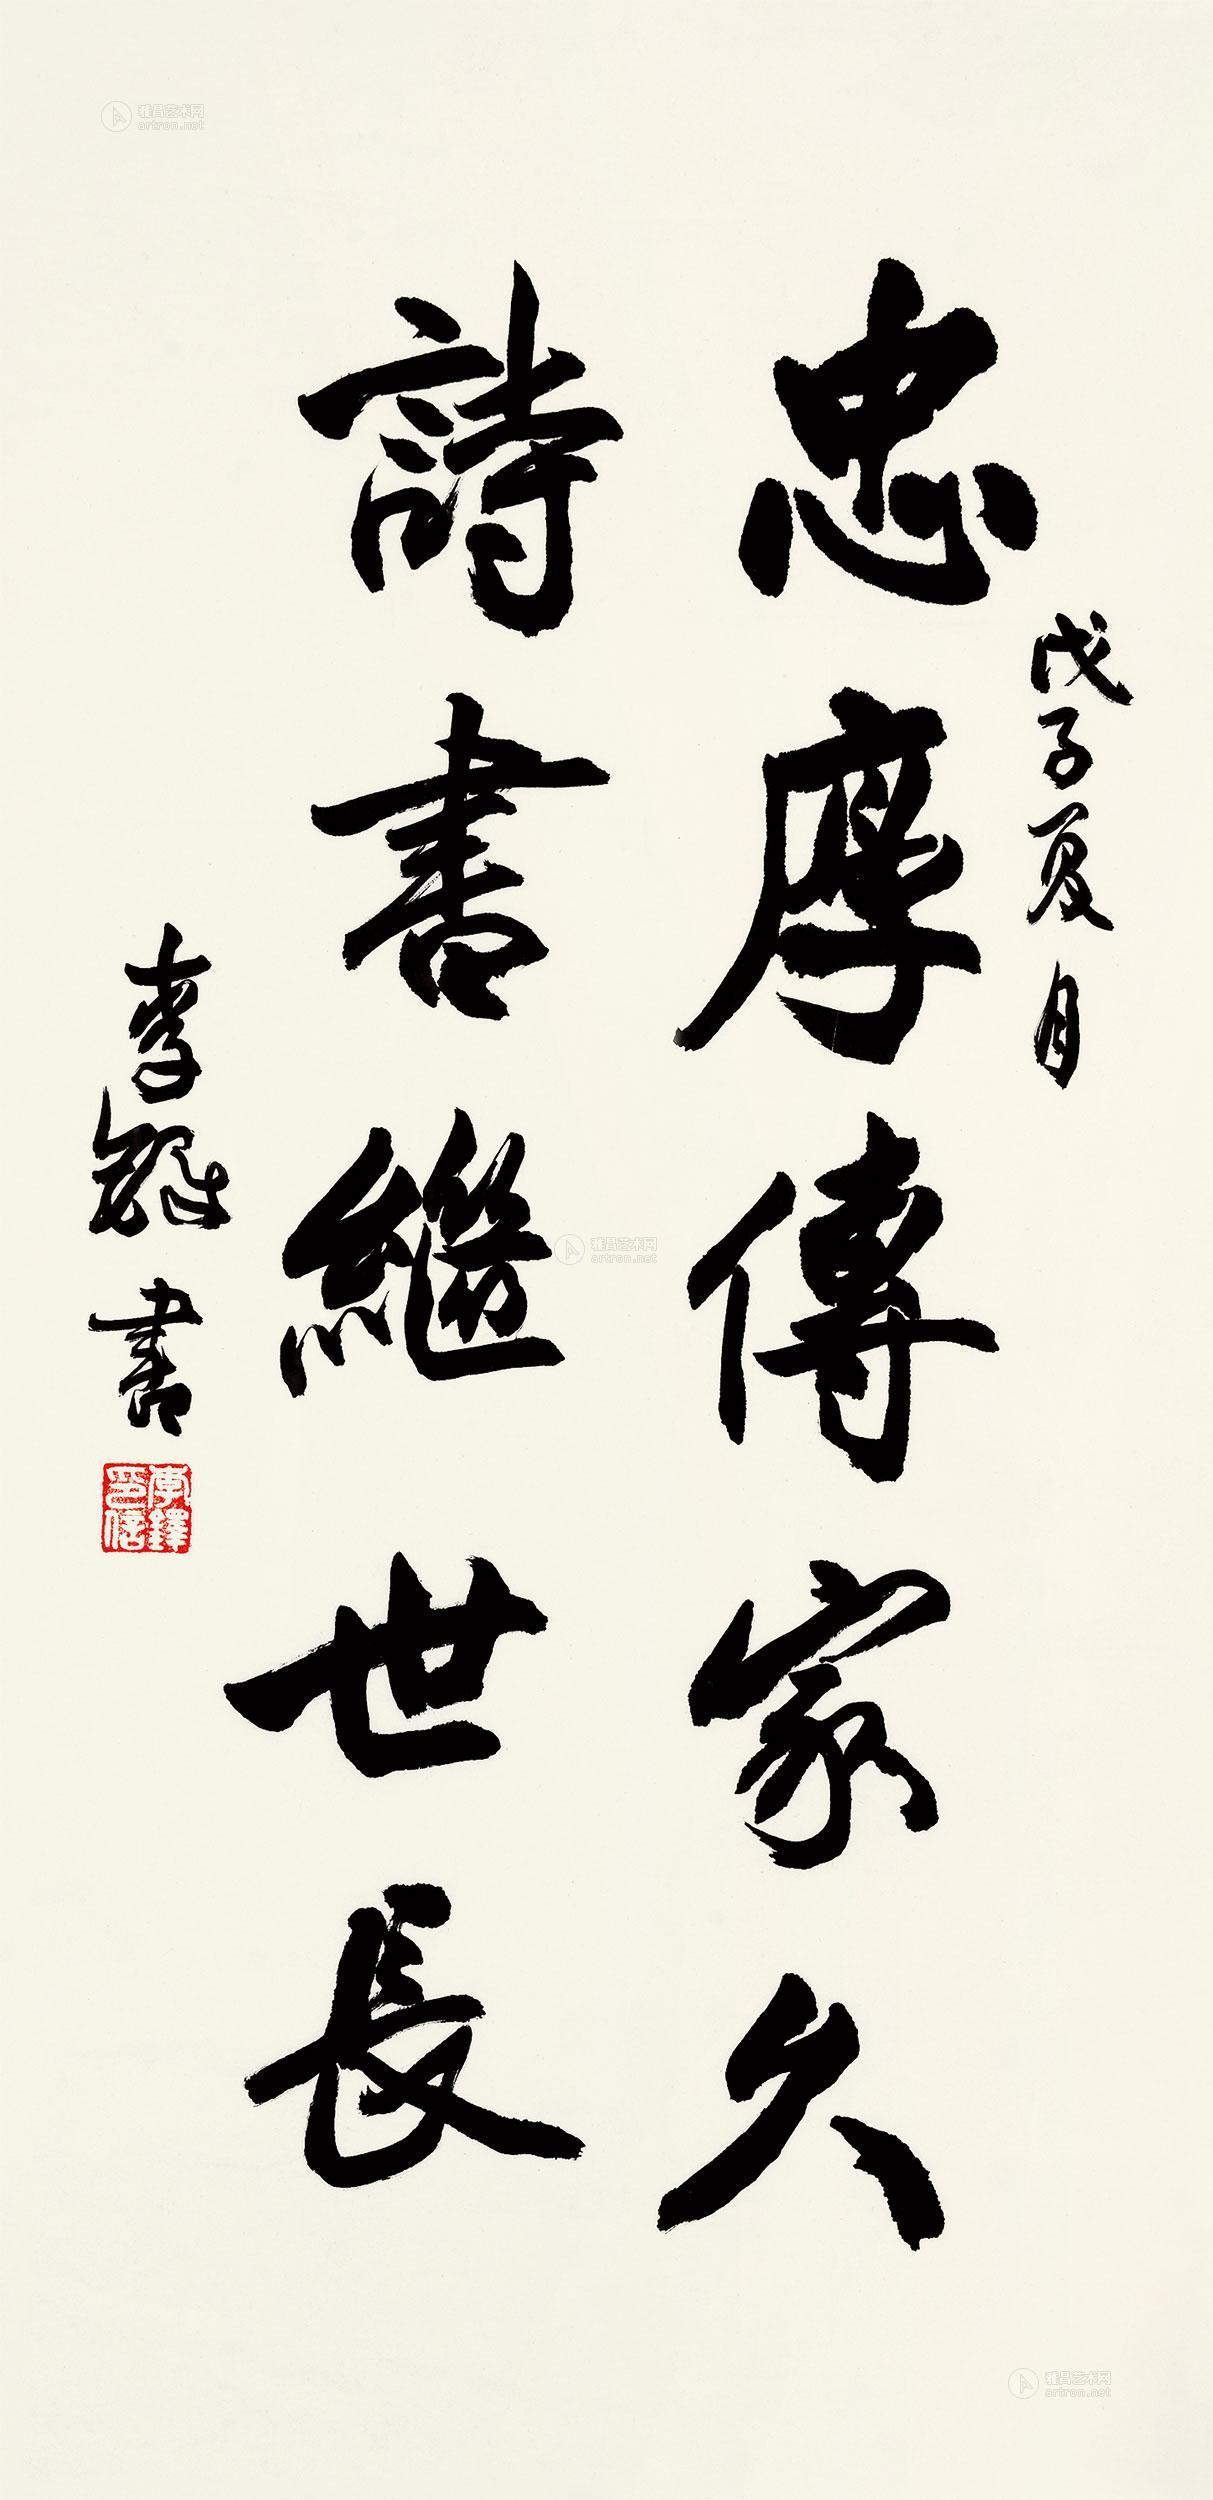 戊子夏月
忠厚傳家久
詩書繼世長
李鐸書
李鐸
印信
雅昌艺术网
artron.net
雅昌艺术网
artron.net
雅昌艺术网
artron.net